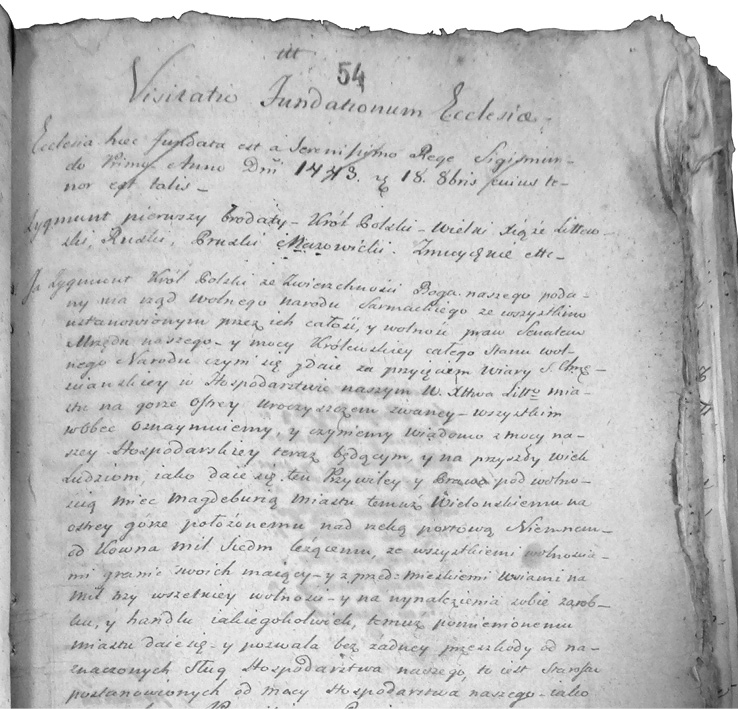 54
Visitatio Fundationum Ecclesiæ
Ecclesia hæc fundata est a Serenissimo Rege Sigismun-
do Primo Anno Dni 1443. 18. 8bris cuius te-
nor est talis
Zygmunt pierwszy Brodaty - Król Polski - Wielki Xiąże Littew-
ski, Ruski, Pruski Mazowiecki. Zmuydzkie ettc-
Ja Zygmunt Król Polski ze Zwierzchności Boga naszego poda-
ny na rząd wolnego narodu Sarmackiego ze wszystkim
ustanowionym przez ich całość, y wolność praw Senatow
Urzędu naszego - y mocy Królewskiey całego Stanu wol-
nego Narodu czym się zdaie za przyięciem Wiary S. Chrze-
scianskiey w Hospodarstwie naszym W. Xttwa Litto mia-
stu na gorze Ostrey uroczyszczem zwaney - wszystkim
wobec oznaymuiemy, y czyniemy wiadomo z mocy na-
szey Hospodarskiey teraz będącym, y na przyszły wiek
Ludziom, iako daie się ten Przywiley y Prawo pod wolno-
scią miec Magdeburią miastu temuż Wielonskiemu na
ostrey górze położonemu nad rzeką portową Niemnem -
od Kowna mil Siedm leżącemu, ze wszystkiemi wolnoscia-
mi granic swoich maiący - y z przedmieskiemi wsiami na
mil trzy wszelkiey wolnosci - y na wynalezienia sobie zarob-
ku, y handlu iakiegokolwiek, temuż pomienionemu
miastu daie się - y pozwala bez żadney przeszkody od na-
znaczonych Sług Hospodarstwa naszego, to iest Starostw
postanowionych od mocy Hospodarstwa naszego - iako